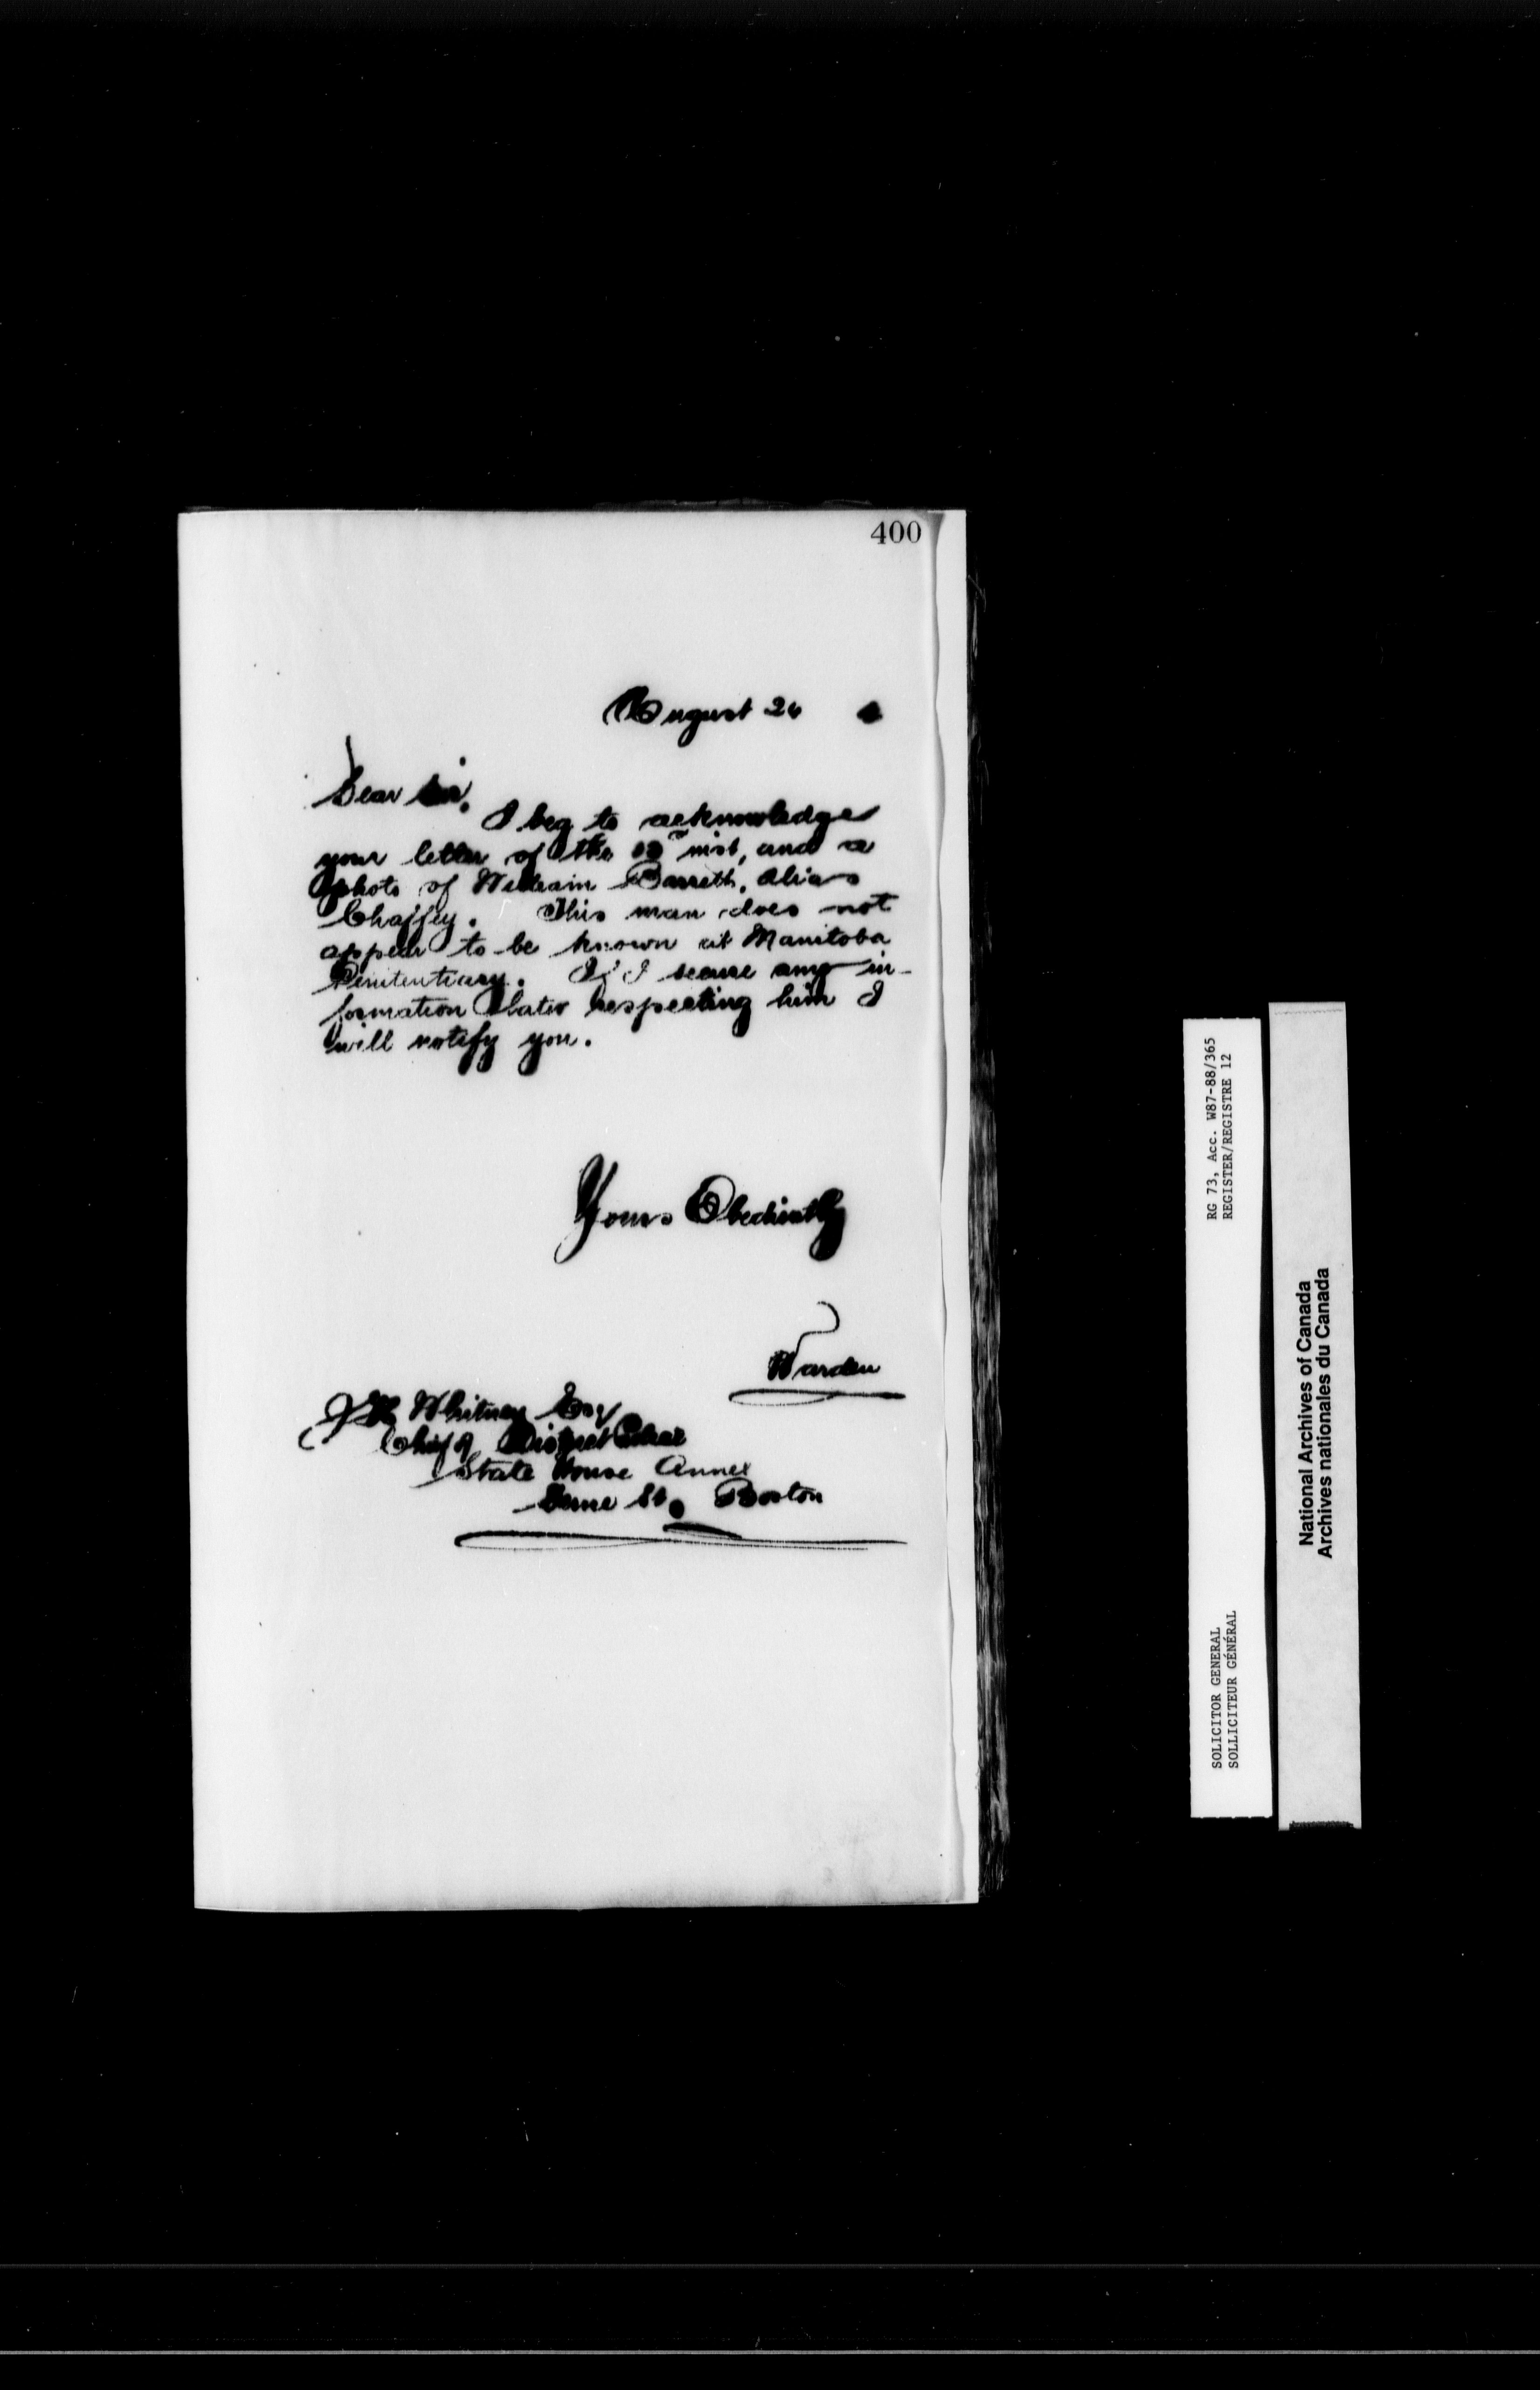 400
August 26
Dear Sir,
I beg to acknowledge
your letter of the inst, and a
photo of William Barrett, alias
Chaffey. This man does not
appear to be known at Manitoba
Penitentiary. If I secure any in-
formation later respecting him I
will notify you.
Yours Obediently
Warden
J H Whitney Esq
Chief District Police
State House Annex
St, Boston
RG 73, Acc. W87-88/365
REGISTER/REGISTRE 12
SOLICITOR GENERAL
SOLLICITEUR GÉNÉRAL
National Archives of Canada
Archives nationales du Canada